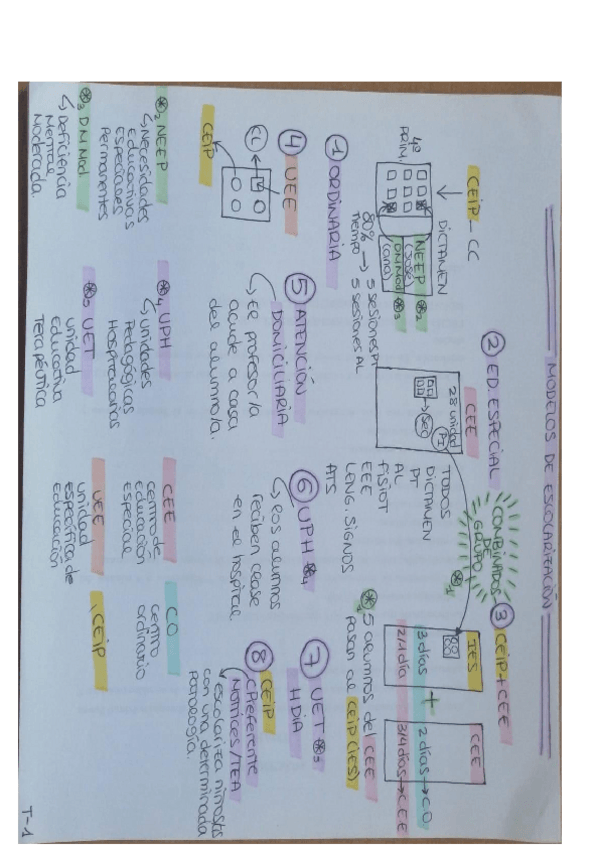 MODELOS DE ESCOLARIZACIÓN
① ORDINARIA
CEIP - CC
↓ DICTAMEN
4º
PRIM.
NEEP ⊛2
(José)
DM Mod ⊛3
(Ana)
80% → 5 sesiones PT
tiempo 5 sesiones AL
② ED. ESPECIAL
CEE
28 unidad
PT
TODOS
DICTAMEN
PT
AL
FISIOT
EEE
LENG. SIGNOS
ATS
COMBINADOS
DE
GRUPO
⊛1
③ CEIP + CEE
IES
3 días
2/1 día
+
CEE
2 días → CO
3/4 días → CEE
⊛1 5 alumnos del CEE
pasan al CEIP (IES)
④ UEE
CL
CEIP
⑤ ATENCIÓN
DOMICILIARIA
↳ El profesor/a
acude a casa
del alumno/a.
⑥ UPH ⊛4
↳ los alumnos
reciben clase
en el hospital.
⑦ UET ⊛5
H DIA
⑧ CEIP
Preferente
Motrices/TEA
↳ escolariza niños/as
con una determinada
patología.
⊛2 NEEP
↳ Necesidades
Educativas
Especiales
Permanentes
⊛3 DM Mod.
↳ Deficiencia
Mental
Moderada.
⊛4 UPH
↳ Unidades
Pedagógicas
Hospitalarias
⊛5 UET
Unidad
Educativa
Terapéutica
CEE
centro de
educación
especial
UEE
unidad
específica de
educación
CO
centro
ordinario
CEIP
T-1